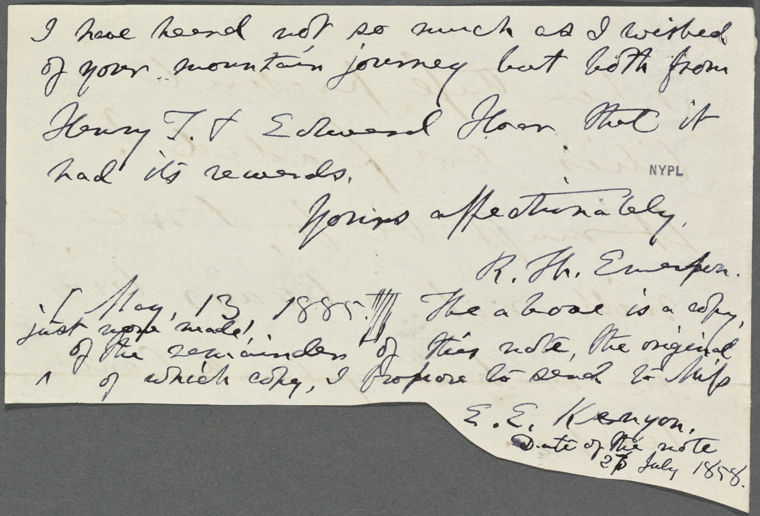 I have heard not so much as I wished
of your mountain journey but both from
Henry T. & Edward Hoar that it
had its rewards.
NYPL
Yours affectionately,
R. W. Emerson.
[May, 13, 1885. The above is a copy,
just now made,
of the remainder of this note, the original
^ of which copy, I propose to send to Miss
E. E. Kenyon.
Date of the note
23 July 1858.